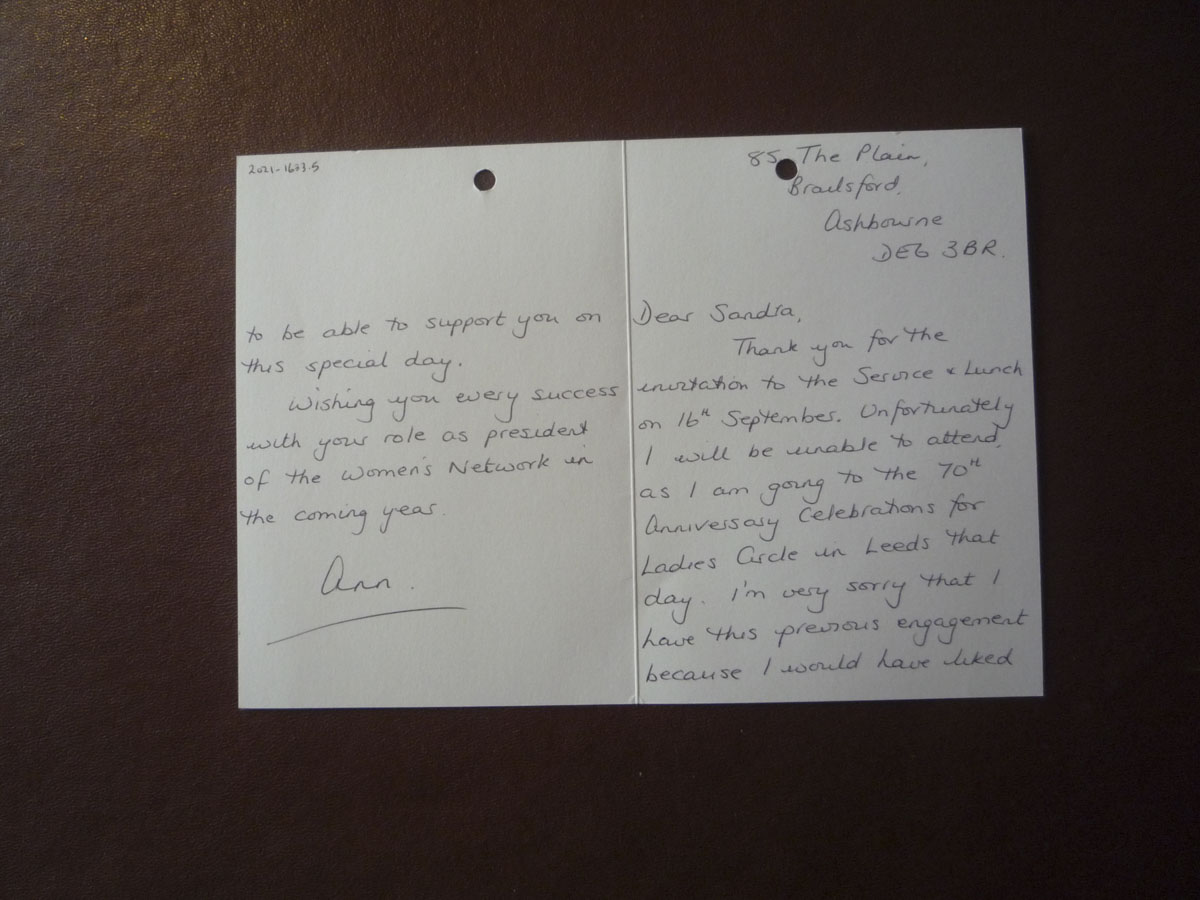 85 The Plain,
Brailsford,
Ashbourne
DE6 3BR.
Dear Sandra,
Thank you for the
invitation to the Service & Lunch
on 16th September. Unfortunately
I will be unable to attend,
as I am going to the 70th
Anniversary Celebrations for
Ladies Circle in Leeds that
day. I'm very sorry that I
have this previous engagement
because I would have liked
2021-1633.5
to be able to support you on
this special day.
Wishing you every success
with your role as president
of the Women's Network in
the coming year.
Ann.